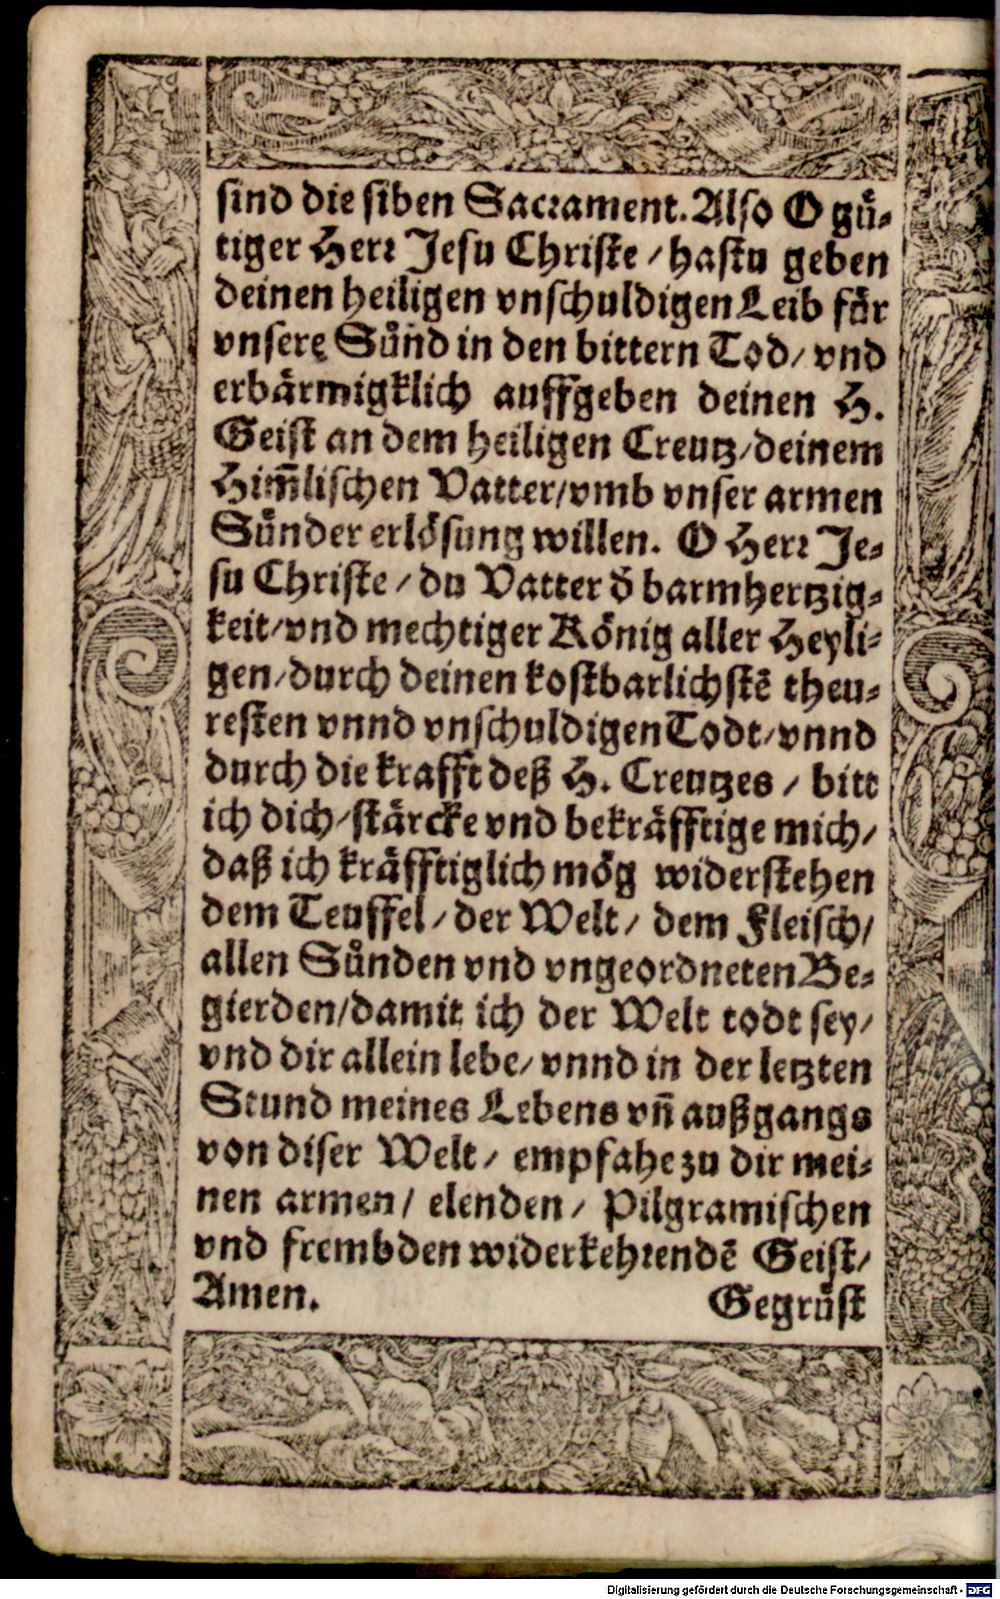 sind die siben Sacrament. Also O guͤ-
tiger Herr Jesu Christe / hastu geben
deinen heiligen vnschuldigen Leib fuͤr
vnsere Suͤnd in den bittern Tod / vnd
erbaͤrmigklich auffgeben deinen H.
Geist an dem heiligen Creutz / deinem
Him̄lischen Vatter / vmb vnser armen
Suͤnder erloͤsung willen. O Herr Je-
su Christe / du Vatter d̄ barmhertzig-
keit / vnd mechtiger Koͤnig aller Heyli-
gen / durch deinen kostbarlichstē theu-
resten vnnd vnschuldigen Todt / vnnd
durch die krafft deß H. Creutzes / bitt
ich dich / staͤrcke vnd bekraͤfftige mich /
daß ich kraͤfftiglich moͤg widerstehen
dem Teuffel / der Welt / dem Fleisch /
allen Suͤnden vnd vngeordneten Be-
gierden / damit ich der Welt todt sey /
vnd dir allein lebe / vnnd in der letzten
Stund meines Lebens vn̄ außgangs
von diser Welt / empfahe zu dir mei-
nen armen / elenden / Pilgramischen
vnd frembden widerkehrendē Geist /
Amen. Gegruͤst
Digitalisierung gefördert durch die Deutsche Forschungsgemeinschaft - DFG